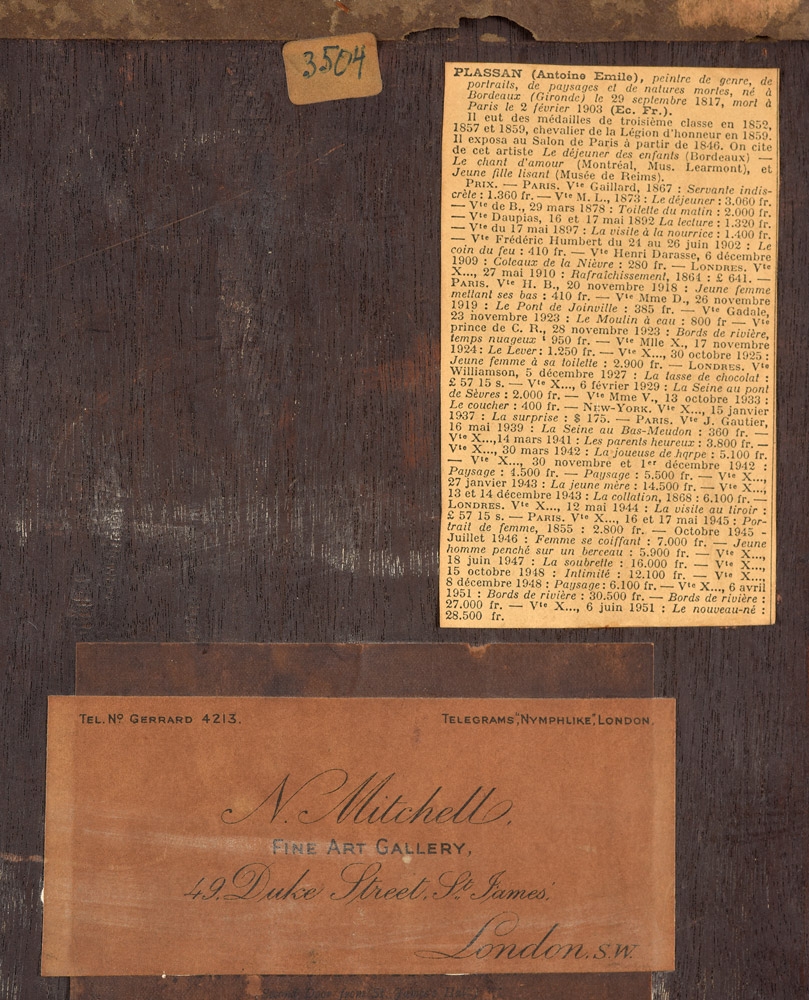 3504
PLASSAN (Antoine Emile), peintre de genre, de
portraits, de paysages et de natures mortes, né à
Bordeaux (Gironde) le 29 septembre 1817, mort à
Paris le 2 février 1903 (Ec. Fr.).
Il eut des médailles de troisième classe en 1852,
1857 et 1859, chevalier de la Légion d'honneur en 1859.
Il exposa au Salon de Paris à partir de 1846. On cite
de cet artiste Le déjeuner des enfants (Bordeaux) —
Le chant d'amour (Montréal, Mus. Learmont), et
Jeune fille lisant (Musée de Reims).
PRIX. — PARIS. Vte Gaillard, 1867 : Servante indis-
crète : 1.360 fr. — Vte M. L., 1873 : Le déjeuner : 3.060 fr.
— Vte de B., 29 mars 1878 : Toilette du matin : 2.000 fr.
— Vte Daupias, 16 et 17 mai 1892 La lecture : 1.320 fr.
— Vte du 17 mai 1897 : La visite à la nourrice : 1.400 fr.
— Vte Frédéric Humbert du 24 au 26 juin 1902 : Le
coin du feu : 410 fr. — Vte Henri Darasse, 6 décembre
1909 : Coteaux de la Nièvre : 280 fr. — LONDRES. Vte
X..., 27 mai 1910 : Rafraîchissement, 1864 : £ 641. —
PARIS. Vte H. B., 20 novembre 1918 : Jeune femme
mettant ses bas : 410 fr. — Vte Mme D., 26 novembre
1919 : Le Pont de Joinville : 385 fr. — Vte Gadala,
23 novembre 1923 : Le Moulin à eau : 800 fr — Vte
prince de C. R., 28 novembre 1923 : Bords de rivière,
temps nuageux : 950 fr. — Vte Mlle X., 17 novembre
1924 : Le Lever : 1.250 fr. — Vte X..., 30 octobre 1925 :
Jeune femme à sa toilette : 2.900 fr. — LONDRES. Vte
Williamson, 5 décembre 1927 : La tasse de chocolat :
£ 57 15 s. — Vte X..., 6 février 1929 : La Seine au pont
de Sèvres : 2.000 fr. — Vte Mme V., 13 octobre 1933 :
Le coucher : 400 fr. — NEW-YORK. Vte X..., 15 janvier
1937 : La surprise : $ 175. — PARIS. Vte J. Gautier,
16 mai 1939 : La Seine au Bas-Meudon : 360 fr. —
Vte X...,14 mars 1941 : Les parents heureux : 3.800 fr. —
Vte X..., 30 mars 1942 : La joueuse de harpe : 5.100 fr.
— Vte X..., 30 novembre et 1er décembre 1942 :
Paysage : 4.500 fr. — Paysage : 5.500 fr. — Vte X...,
27 janvier 1943 : La jeune mère : 14.500 fr. — Vte X...,
13 et 14 décembre 1943 : La collation, 1868 : 6.100 fr. —
LONDRES. Vte X..., 12 mai 1944 : La visite au tiroir :
£ 57 15 s. — PARIS. Vte X..., 16 et 17 mai 1945 : Por-
trait de femme, 1855 : 2.800 fr. — Octobre 1945 -
Juillet 1946 : Femme se coiffant : 7.000 fr. — Jeune
homme penché sur un berceau : 5.900 fr. — Vte X...,
18 juin 1947 : La soubrette : 16.000 fr. — Vte X...,
15 octobre 1948 : Intimité : 12.100 fr. — Vte X...,
8 décembre 1948 : Paysage : 6.100 fr. — Vte X..., 6 avril
1951 : Bords de rivière : 30.500 fr. — Bords de rivière :
27.000 fr. — Vte X..., 6 juin 1951 : Le nouveau-né :
28.500 fr.
TEL. No GERRARD 4213.
TELEGRAMS, "NYMPHLIKE", LONDON.
N. Mitchell,
FINE ART GALLERY,
49, Duke Street, St. James'
London. S.W.